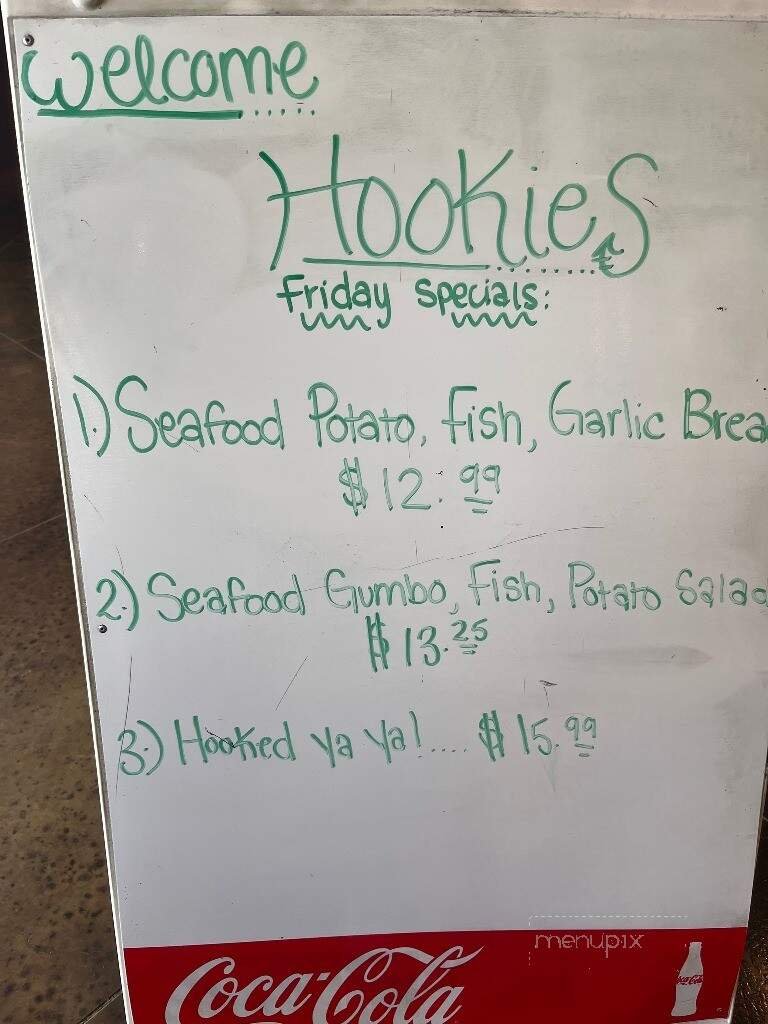 Welcome
Hookies
Friday Specials:
1.) Seafood Potato, Fish, Garlic Brea
$12.99
2.) Seafood Gumbo, Fish, Potato Salad
$13.25
3.) Hooked Ya Ya!.... $15.99
menupix
Coca-Cola
Coca-Cola